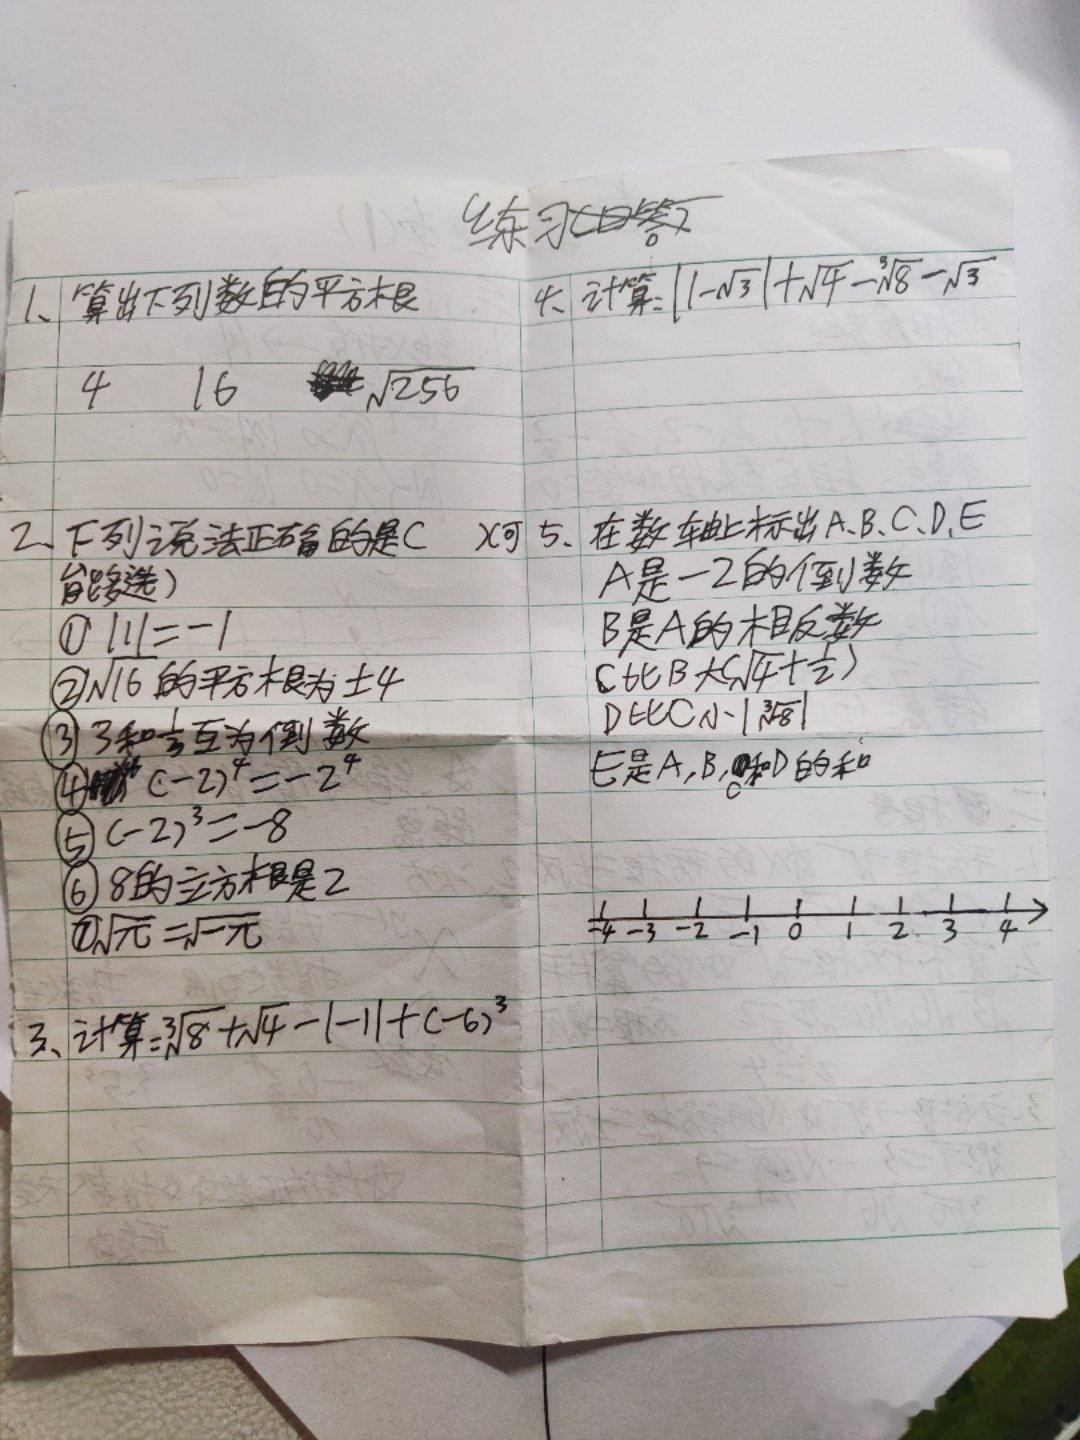 练习
1、算出下列数的平方根
4 16 √256
2、下列说法正确的是(  )(可
能多选)
① |1|=-1
② √16的平方根为±4
③ 3和⅓互为倒数
④ (-2)⁴=-2⁴
⑤ (-2)³=-8
⑥ 8的立方根是2
⑦ √元=√-元
3、计算:³√8+√4-|-1|+(-6)³
4、计算:|1-√3|+√4-³√8-√3
5、在数轴上标出A、B、C、D、E
A是-2的倒数
B是A的相反数
C比B大(√4+½)
D比C小|³√8|
E是A,B,C和D的和
-4 -3 -2 -1 0 1 2 3 4